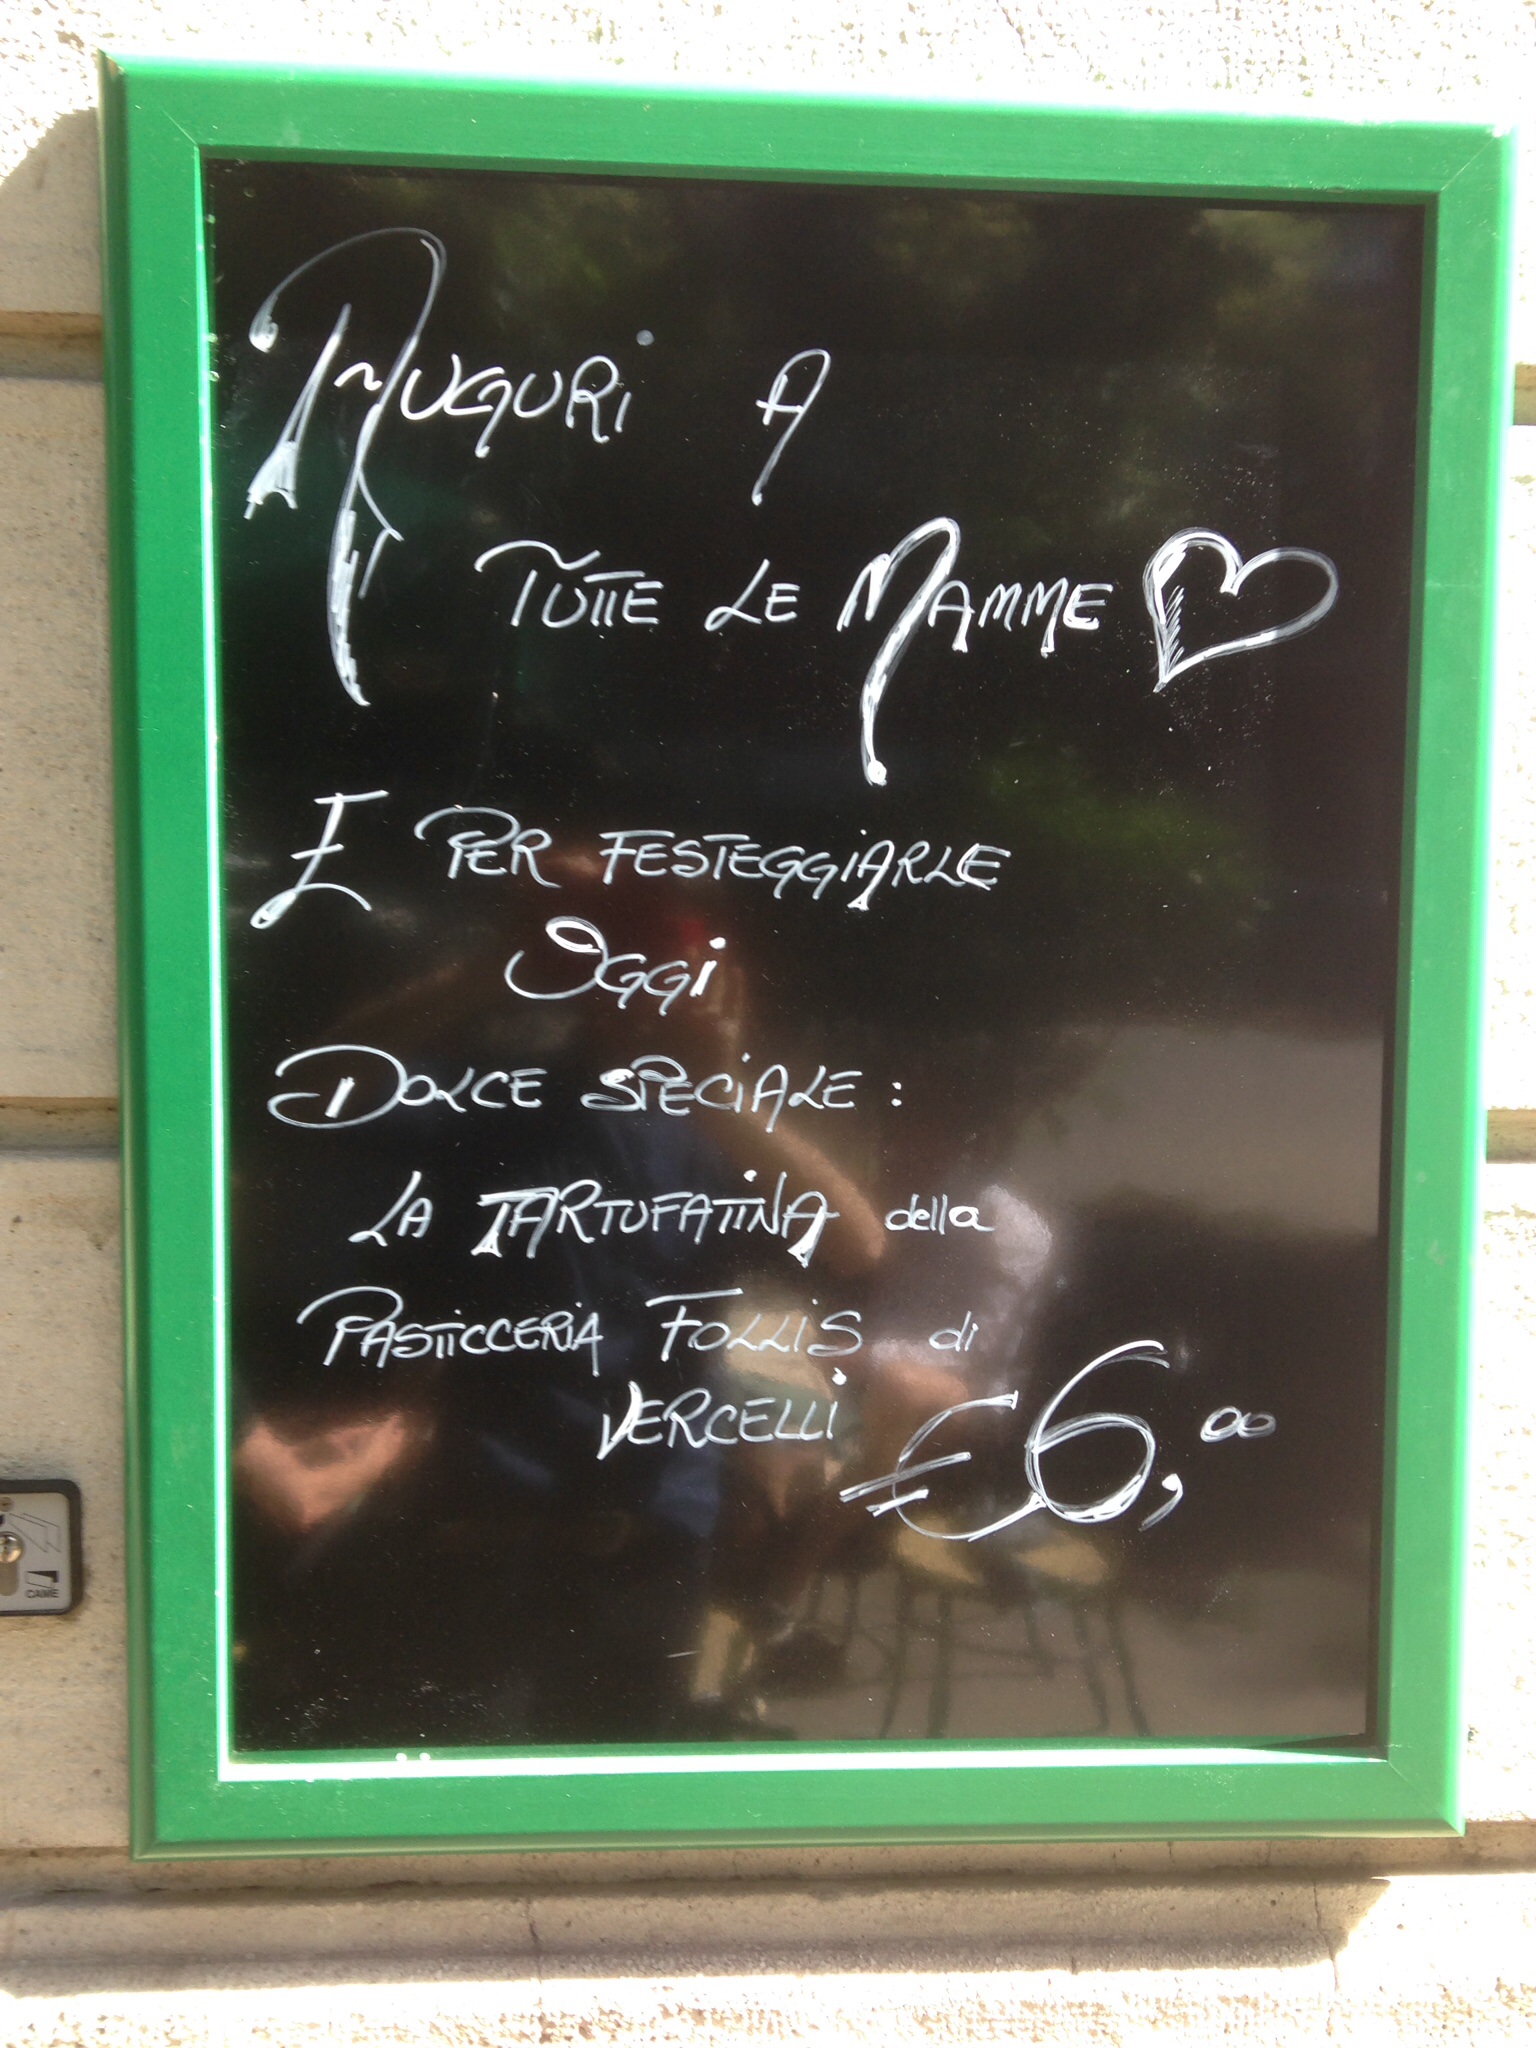 AUGURI A
TUTTE LE MAMME
E PER FESTEGGIARLE
OGGI
DOLCE SPECIALE:
LA TARTUFATINA della
PASTICCERIA FOLLIS di
VERCELLI
€6,00
CAME